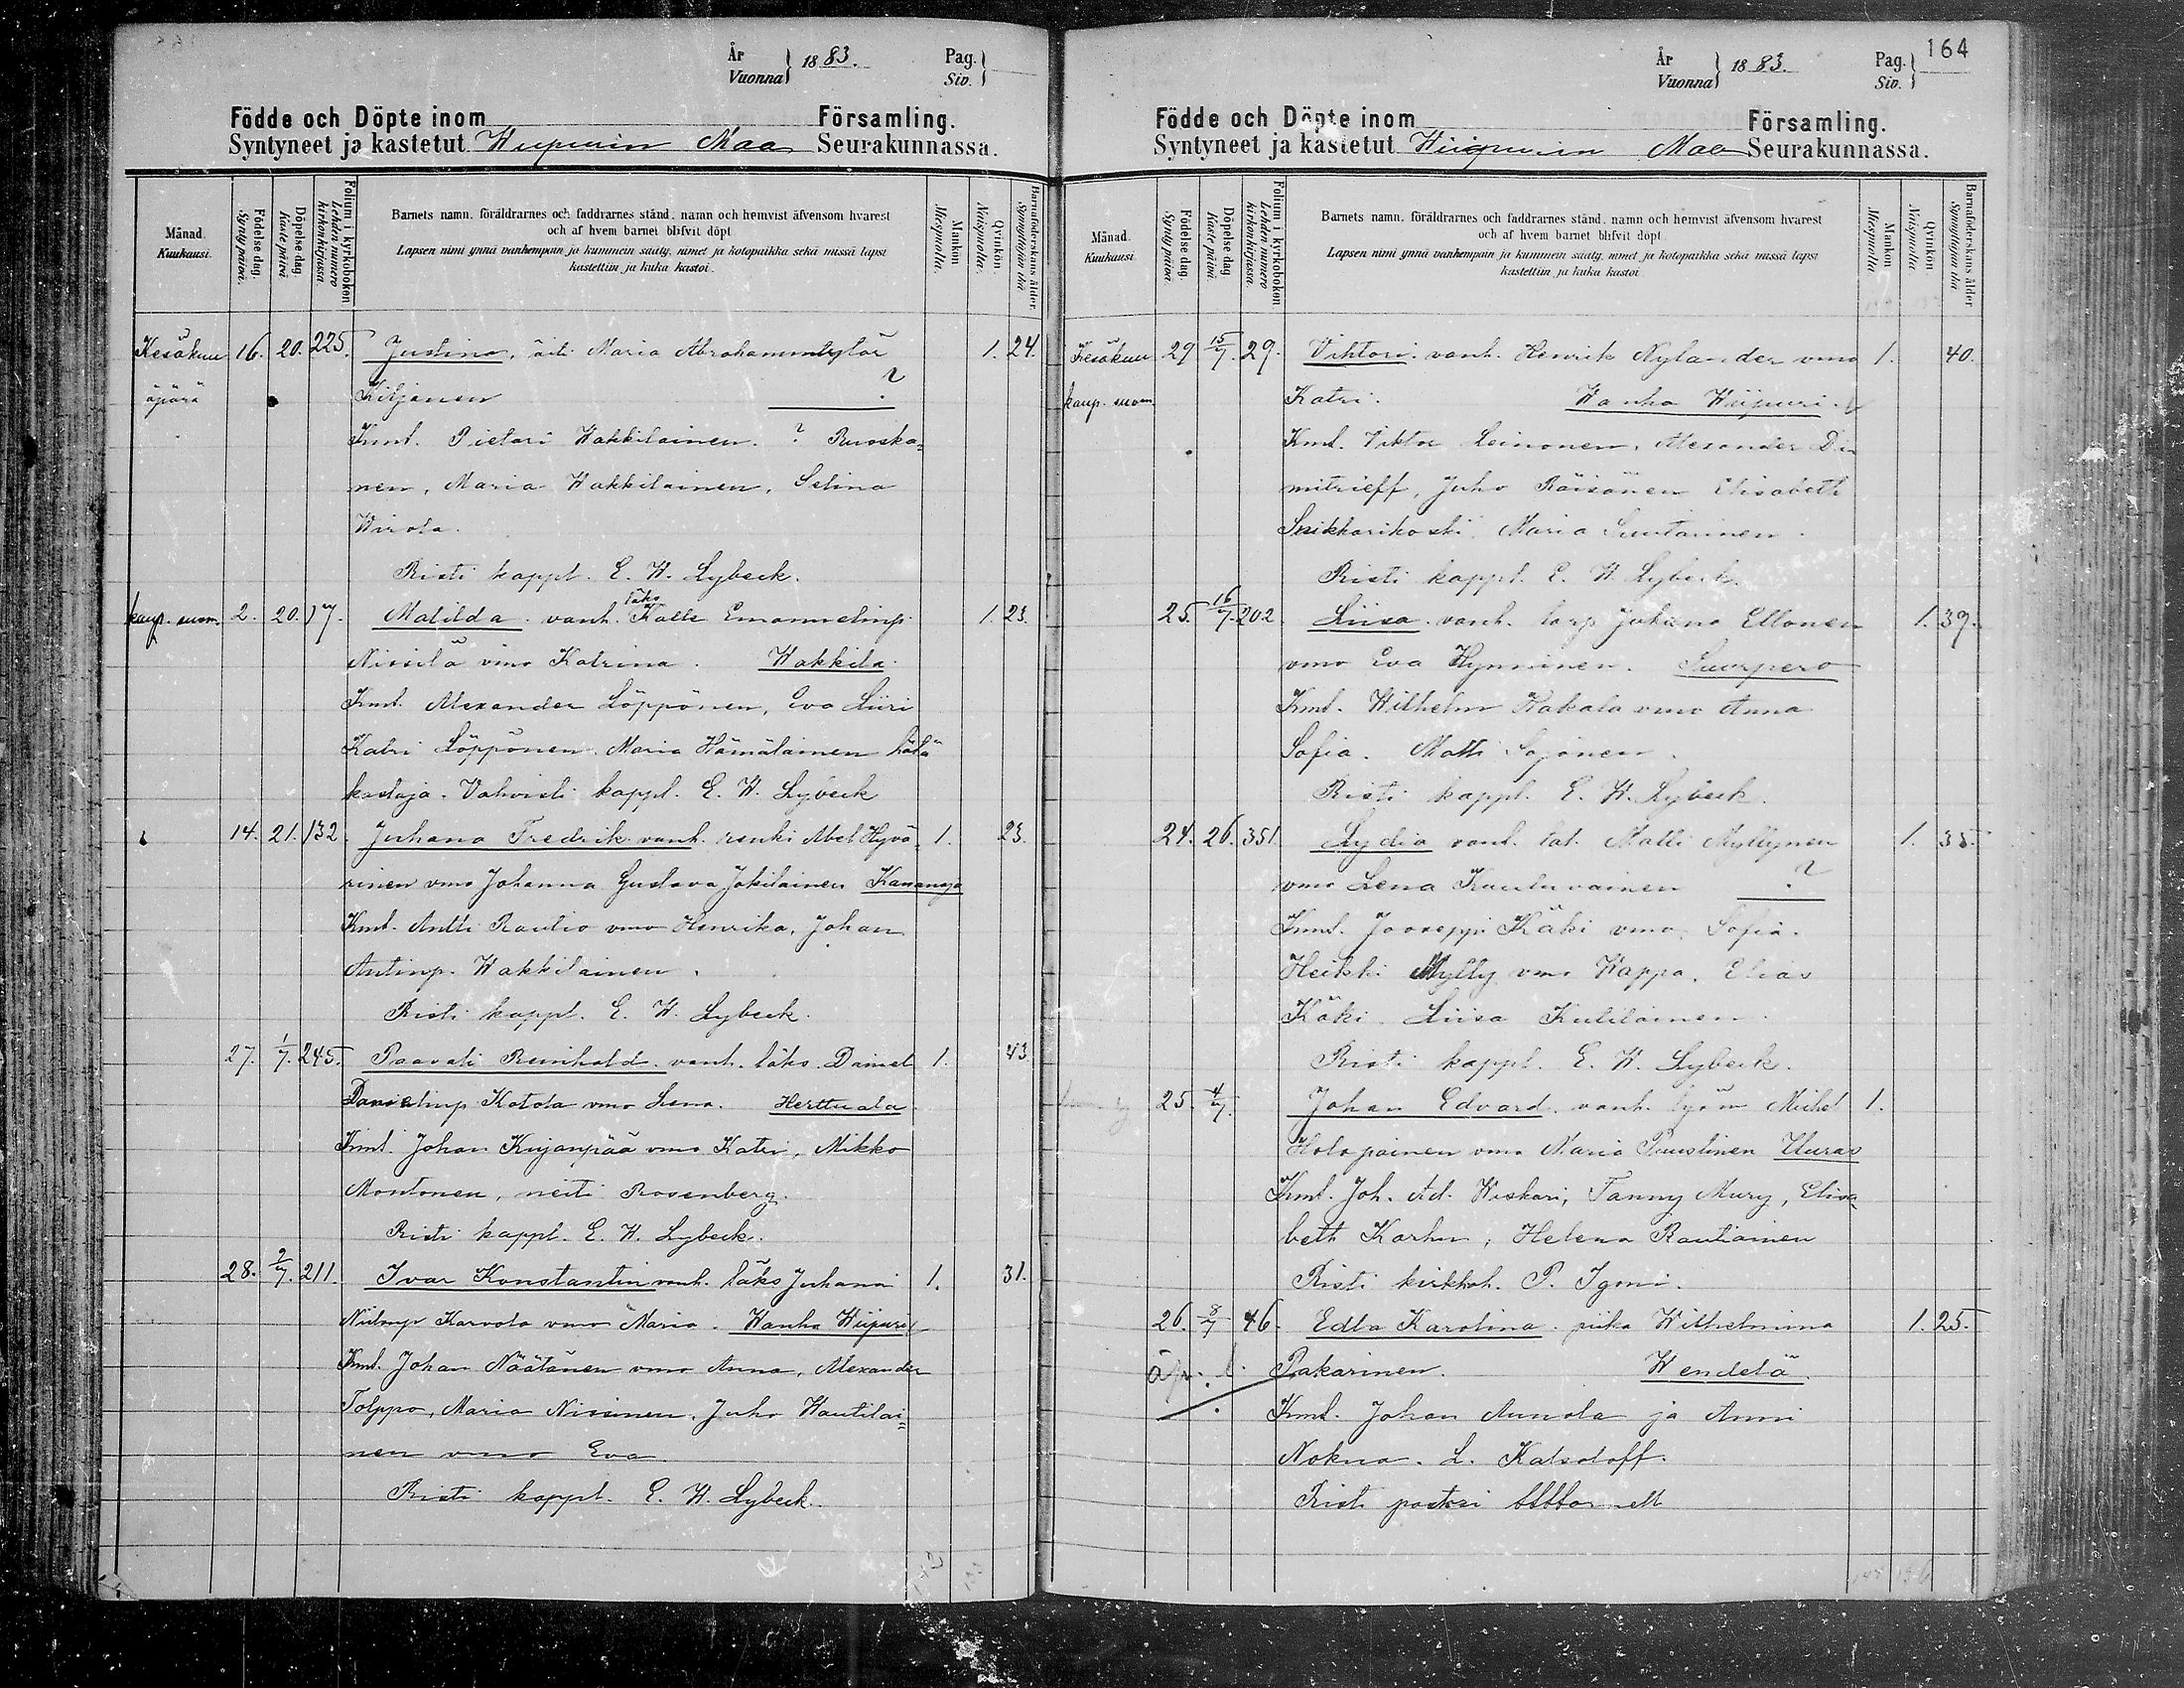 År
Vuonna } 1883.
Pag.
Siv. }
Födde och Döpte inom Församling.
Syntyneet ja kastetut Wiipurin Maa Seurakunnassa.
Månad.
Kuukausi.
Födelse dag.
Synty päivä.
Döpelse dag.
Kaste päivä.
Folium i kyrkobokon
Lehden numero
kirkonkirjassa
Barnets namn, föräldrarnes och faddrarnes stånd, namn och hemvist äfvensom hvarest
och af hvem barnet blifvit döpt
Lapsen nimi ynnä vanhempain ja kummein sääty, nimet ja kotopaikka sekä missä lapsi
kastettiin ja kuka kastoi.
Mankön.
Miespuolia.
Qvinkön.
Naispuolia.
Barnaföderskans ålder.
Synnyttäjän ikä
Kesäkuu 16. 20. 225. Justina, äiti Maria Abrahamintytär 1. 24.
äpärä Kiljanen ?
Kmt. Pietari Wakkilainen. ? Ruoska-
nen, Maria Wakkilainen, Selina
Wirola.
Risti kappl. E. W. Lybeck.
läks
kaup. suom. 2. 20. 17. Matilda. vanh. Kalle Emanuelinp. 1. 23.
Nissilä vmo Katrina. Wakkila.
Kmt. Alexander Löppönen, Eva Liiri
Katri Löppönen. Maria Hämäläinen hätä
kastaja. Vahvisti kappl. E. W. Lybeck
14. 21. 132. Juhana Fredrik. vanh. renki Abel Hyvä- 1. 23.
rinen vmo Johanna Gustava Jokilainen Kananoja
Kmt. Antti Rautio vmo Henrika, Johan
Antinp. Wakkilainen.
Risti kappl. E. W. Lybeck.
27. 1/7. 245. Paavali Reinhold. vanh. läks. Daniel 1. 43.
Danielinp Kotola vmo Lena. Herttuala.
Kmt. Johan Kujanpää vmo Katri, Mikko
Montonen, neiti Rosenberg.
Risti kappl. E. W. Lybeck.
28. 2/7. 211. Ivar Konstantin vanh. läks Juhana 1. 31.
Niilonp Karvola vmo Maria. Wanha Wiipuri
Kmt. Johan Näätänen vmo Anna, Alexander
Tolppo, Maria Nissinen. Juho Hautilai-
nen vmo Eva.
Risti kappl. E. W. Lybeck.
164
År
Vuonna } 1883.
Pag.
Siv. }
Födde och Döpte inom Församling.
Syntyneet ja kastetut Wiipurin Maa Seurakunnassa.
Månad.
Kuukausi.
Födelse dag.
Synty päivä.
Döpelse dag.
Kaste päivä.
Folium i kyrkobokon
Lehden numero
kirkonkirjassa.
Barnets namn, föräldrarnes och faddrarnes stånd, namn och hemvist äfvensom hvarest
och af hvem barnet blifvit döpt.
Lapsen nimi ynnä vanhempain ja kummein sääty, nimet ja kotopaikka sekä missä lapsi
kastettiin ja kuka kastoi.
Mankön
Miespuolia.
Qvinkön
Naispuolia.
Barnaföderskans ålder
Synnyttäjän ikä
Kesäkuu 29 15/7. 29. Vihtori. vanh. Henrik Nylander vmo 1. 40.
kaup. suom. Katri. Wanha Wiipuri.
Kmt. Viktor Leinonen, Alexander Di-
mitrieff, Juho Räisänen Elisabeth
Snikkarikoski. Maria Suutarinen.
Risti kappl. E. W. Lybeck.
25. 16/7. 202. Liisa. vanh. torp Juhana Ellonen 1. 39.
vmo Eva Hynninen. Suurpero
Kmt. Wilhelm Kakala vmo Anna
Sofia. Matti Sojonen.
Risti kappl. E. W. Lybeck.
24. 26. 351. Lydia vanh. tal. Matti Myllynen 1. 35.
vmo Lena Kautuvainen ?
Kmt. Jooseppi Käki vmo Sofia.
Heikki Mylly vmo Wappa. Elias
Käki. Liisa Kulilainen.
Risti kappl. E. W. Lybeck.
25. 4/7. Johan Edvard. vanh. työm Mikel 1.
Holopainen vmo Maria Puustinen Uuras
Kmt. Joh. Ad. Weskari, Fanny Mury, Elisa-
beth Karhu, Helena Rautiainen
Risti kirkkoh. P. Igoni.
26. 8/7 46. Edla Karolina. piika Wilhelmina 1. 25.
äp. l. Pakarinen. Wendelä.
Kmt. Johan Aunola ja Anni
Nokua. L. Katsoloff.
Risti pastori